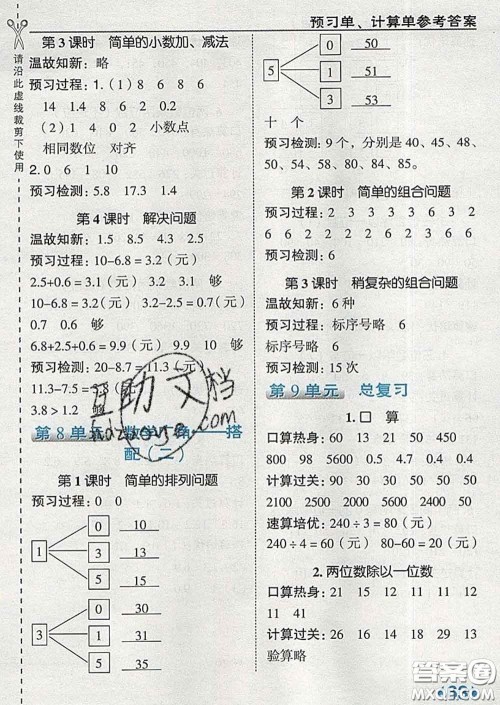 预习单、计算单参考答案
请沿此虚线裁剪下使用
第3课时 简单的小数加、减法
温故知新：略
预习过程：1.（1）8 6 8 6
14 6 1.2 0.2
（2）1 4 0 2 小数点
相同数位 对齐
2.0 6 1 10
预习检测：5.8 17.3 1.4
第4课时 解决问题
温故知新：1.5 8.5 4.3 2.5
预习过程：10−6.8=3.2（元）
2.5+0.6=3.1（元） 3.2 3.1 够
10−6.8=3.2（元） 3.2−2.5=0.7（元）
0.7 0.6 够
6.8+2.5+0.6=9.9（元） 9.9 10 够
预习检测：20−8.7=11.3（元）
11.3−7.5=3.8（元）
3.8＞1.2 够
第8单元 数学广角——搭
配（二）
第1课时 简单的排列问题
预习过程：0 0
1
0 10
3 13
5 15
3
0 30
1 31
5 35
5
0 50
1 51
3 53
十 个
预习检测：9个，分别是40、45、48、
50、54、58、80、84、85。
第2课时 简单的组合问题
预习过程：2 3 3 3 3 6 3 2
6 2 2 2 2 2 2 6 6
预习检测：6
第3课时 稍复杂的组合问题
温故知新：6种
预习过程：标序号略 6
标序号略 6
预习检测：15次
第9单元 总复习
1.口 算
口算热身：60 13 21 50 450
800 98 5600 0.5 4.7 0.4 3
计算过关：240 36 2400 50 50
2100 2500 2000 5600 2400 50
速算培优：240÷3=80（元）
240÷4=60（元） 80−60=20（元）
2.两位数除以一位数
口算热身：21 15 12 11 11 12
11 41
计算过关：31 27 14 17 16 24
验算略
互助文档
hdzuoye.com
答案圈